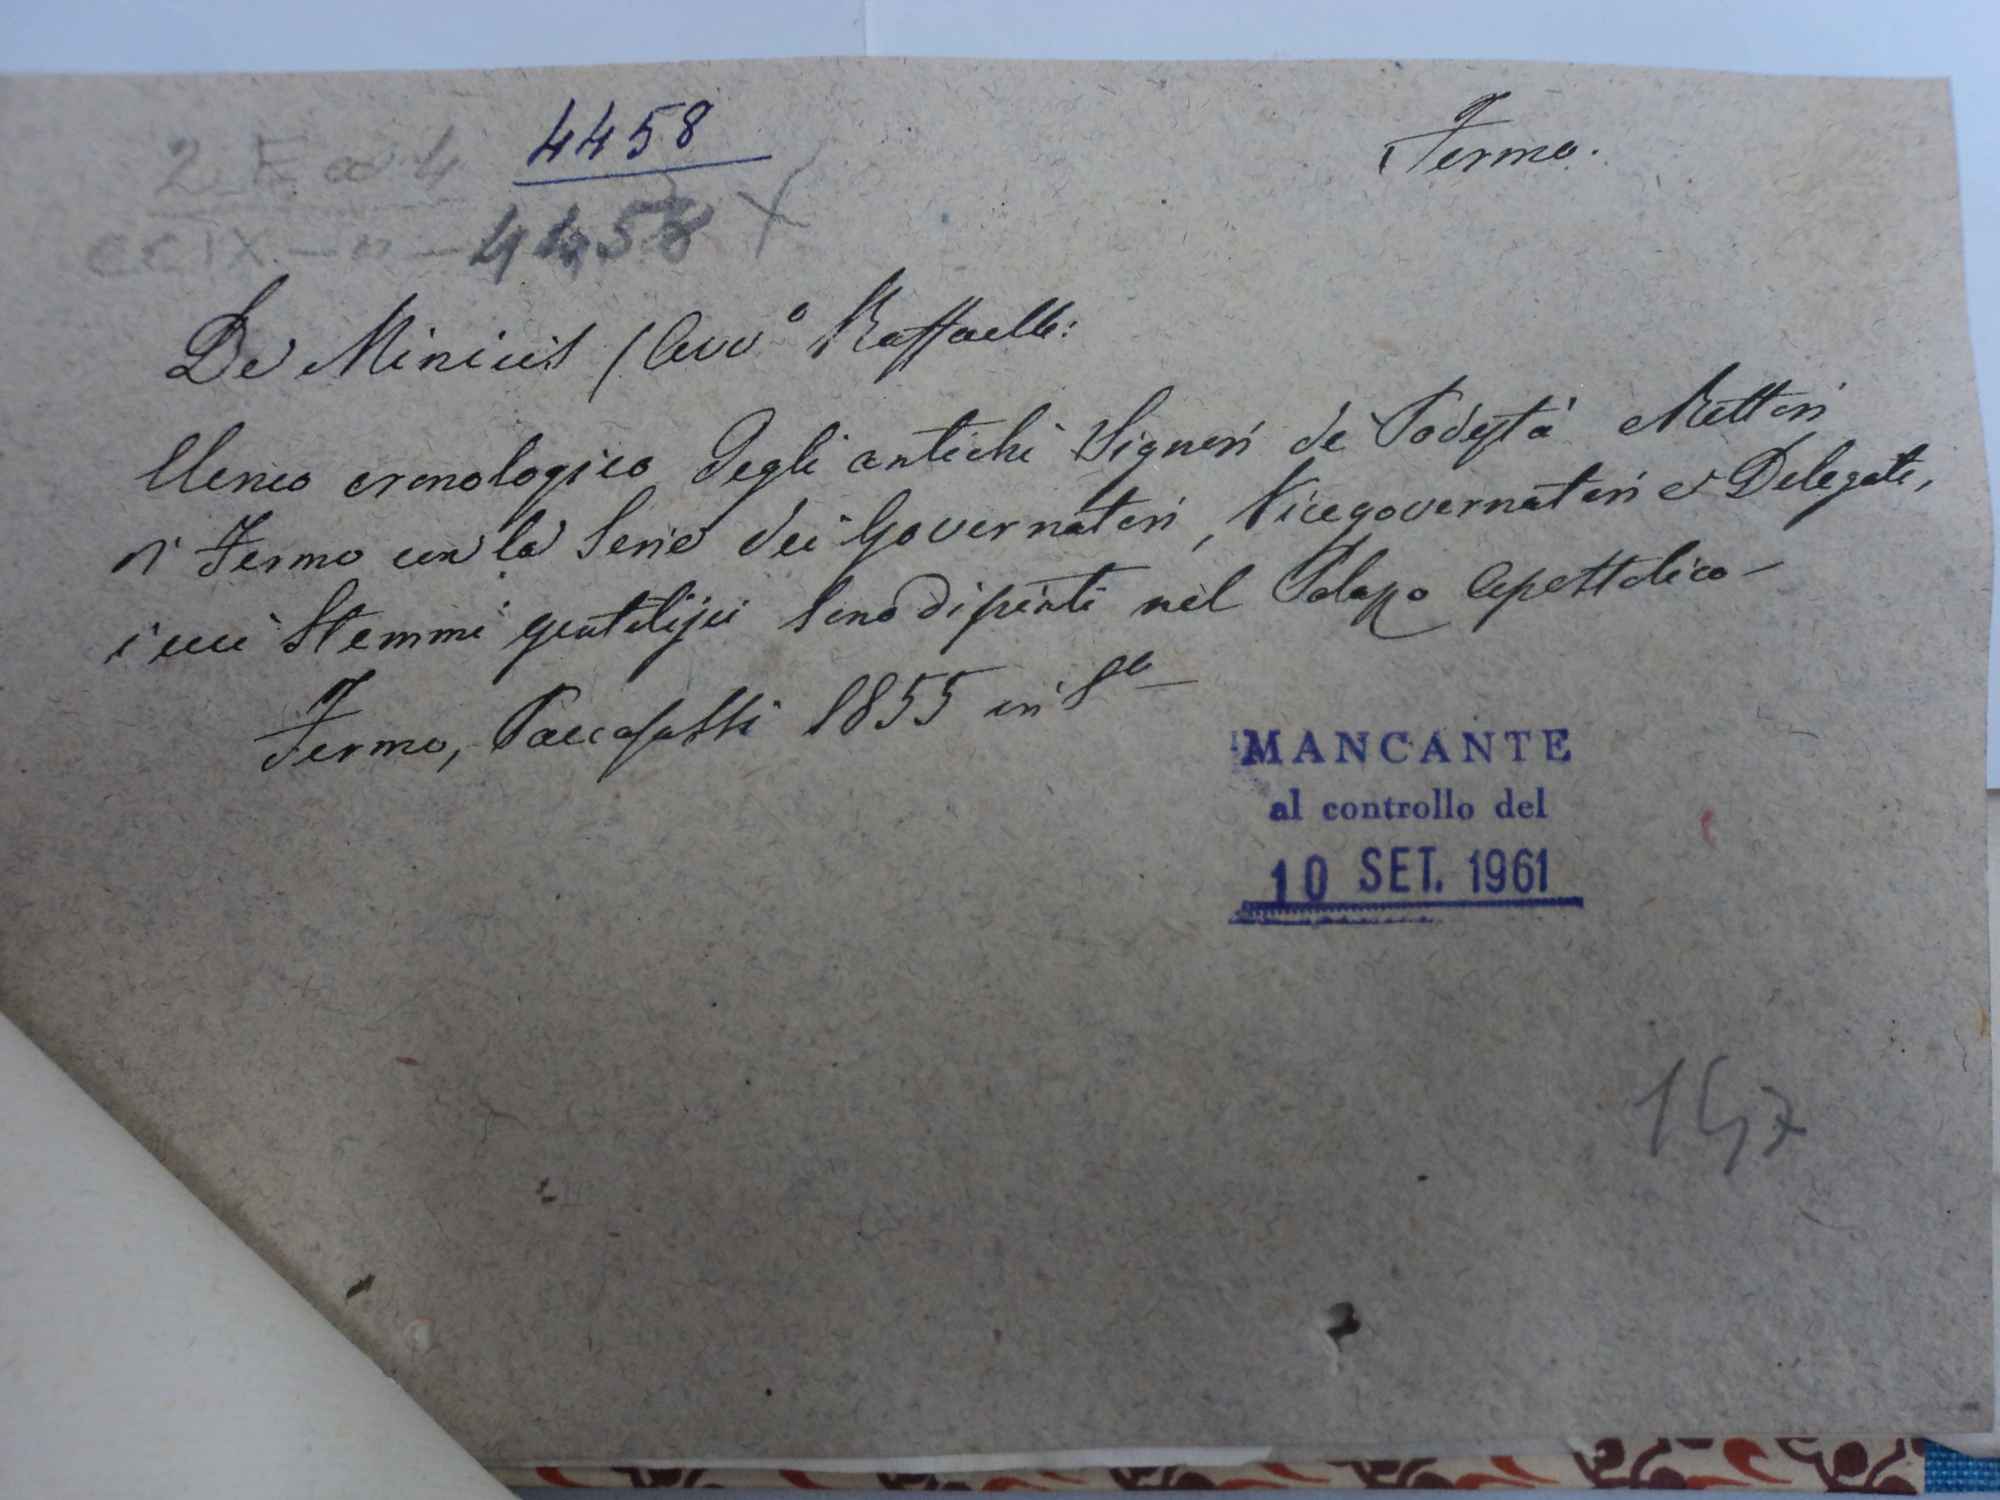 4458
Fermo.
4458 X
De Minicis (Avvo Raffaelle:
Elenco cronologico degli antichi Signori de Podestà e Rettori
di Fermo con la Serie dei Governatori, Vicegovernatori e Delegati,
i cui Stemmi gentilizi sono dipinti nel Palazzo Apostolico -
Fermo, Paccasassi 1855 in 8o
MANCANTE
al controllo del
10 SET. 1961
147